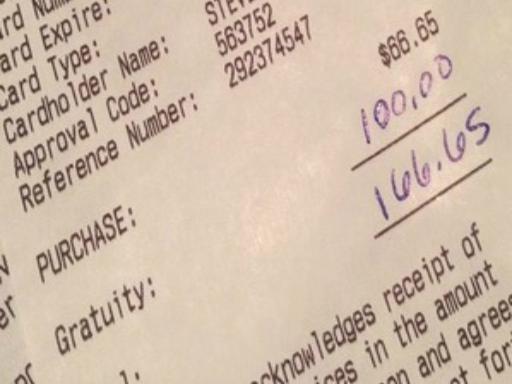 ard Expire:
Card Type:
Cardholder Name:
Approval Code: 563752
Reference Number: 292374547
PURCHASE: $66.65
Gratuity: 100.00
166.65
cknowledges receipt of
ces in the amount
on and agrees
t for